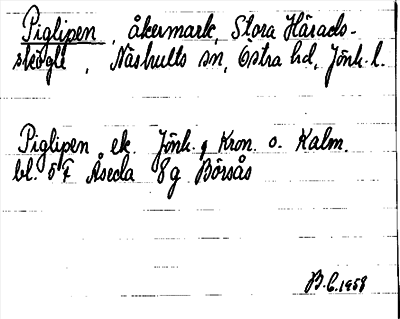 Piglipen, åkermark, Stora Härads-
skögle, Näshults sn, Östra hd, Jönk. l.
Piglipen ek. Jönk. Kron. o. Kalm.
bl. 5F Åseda 8g Börsås
B.E. 1958